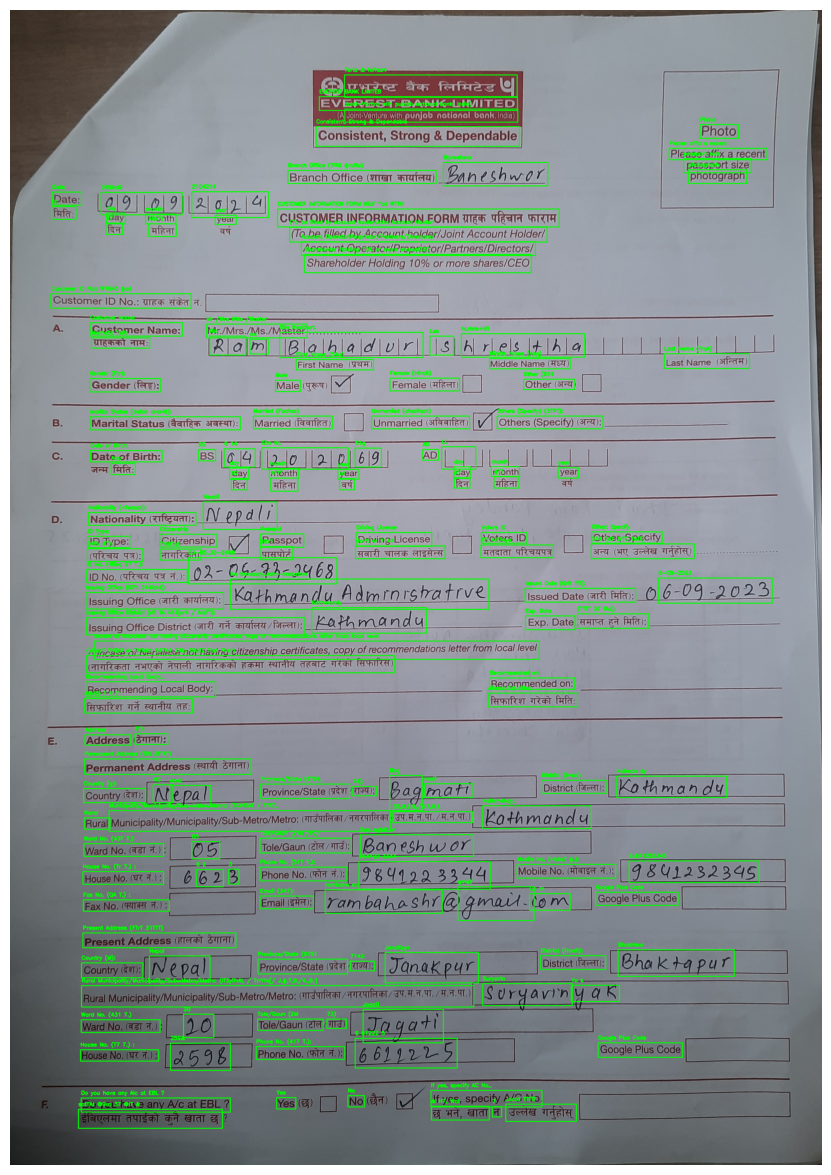 एभरेष्ट बैंक लिमिटेड
EVEREST BANK LIMITED
(A Joint-Venture with punjab national bank, India)
Consistent, Strong & Dependable
Photo
Please affix a recent
passport size
photograph
Branch Office (शाखा कार्यालय) Baneshwor
Date: 09 09 2024
मिति: day month year
दिन महिना वर्ष
CUSTOMER INFORMATION FORM ग्राहक पहिचान फाराम
(To be filled by Account holder/Joint Account Holder/
Account Operator/Proprietor/Partners/Directors/
Shareholder Holding 10% or more shares/CEO
Customer ID No.: ग्राहक संकेत नं.
A. Customer Name: Mr./Mrs./Ms./Master
ग्राहकको नाम: Ram Bahadur shrestha
First Name (प्रथम) Middle Name (मध्य) Last Name (अन्तिम)
Gender (लिङ्ग): Male (पुरूष) ✓ Female (महिला) Other (अन्य)
B. Marital Status (वैवाहिक अवस्था): Married (विवाहित) Unmarried (अविवाहित) ✓ Others (Specify) (अन्य):
C. Date of Birth: BS 04 20 2069 AD
जन्म मिति: day month year day month year
दिन महिना वर्ष दिन महिना वर्ष
D. Nationality (राष्ट्रियता): Nepali
ID Type: Citizenship ✓ Passpot Driving License Voters ID Other Specify
(परिचय पत्र): नागरिकता पासपोर्ट सवारी चालक लाइसेन्स मतदाता परिचयपत्र अन्य (भए उल्लेख गर्नुहोस्)
ID No. (परिचय पत्र नं.): 02-05-73-2468
Issuing Office (जारी कार्यालय): Kathmandu Administrative Issued Date (जारी मिति): 06-09-2023
Issuing Office District (जारी गर्ने कार्यालय/जिल्ला): Kathmandu Exp. Date समाप्त हुने मिति:
Incase of Nepalese not having citizenship certificates, copy of recommendations letter from local level
(नागरिकता नभएको नेपाली नागरिकको हकमा स्थानीय तहबाट गरेको सिफारिस)
Recommending Local Body: Recommended on:
सिफारिश गर्ने स्थानीय तह: सिफारिश गरेको मिति:
E. Address (ठेगाना):
Permanent Address (स्थायी ठेगाना)
Country (देश): Nepal Province/State (प्रदेश/राज्य): Bagmati District (जिल्ला): Kathmandu
Rural Municipality/Municipality/Sub-Metro/Metro: (गाउँपालिका/नगरपालिका/उप.म.न.पा./म.न.पा.) Kathmandu
Ward No. (वडा नं.): 05 Tole/Gaun (टोल/गाउँ): Baneshwor
House No. (घर नं.): 6623 Phone No. (फोन नं.): 9841223344 Mobile No. (मोबाइल नं.): 9841232345
Fax No. (फ्याक्स नं.): Email (इमेल): rambahashr@gmail.com Google Plus Code
Present Address (हालको ठेगाना)
Country (देश): Nepal Province/State (प्रदेश/राज्य): Janakpur District (जिल्ला): Bhaktapur
Rural Municipality/Municipality/Sub-Metro/Metro: (गाउँपालिका/नगरपालिका/उप.म.न.पा./म.न.पा.) Suryavinyak
Ward No. (वडा नं.): 20 Tole/Gaun (टोल/गाउँ): Jagati
House No. (घर नं.): 2598 Phone No. (फोन नं.): 6611225 Google Plus Code
F. Do you have any A/c at EBL ? Yes (छ) No (छैन) ✓ If yes, specify A/C No.
इबिएलमा तपाईंको कुनै खाता छ ? छ भने, खाता नं उल्लेख गर्नुहोस्